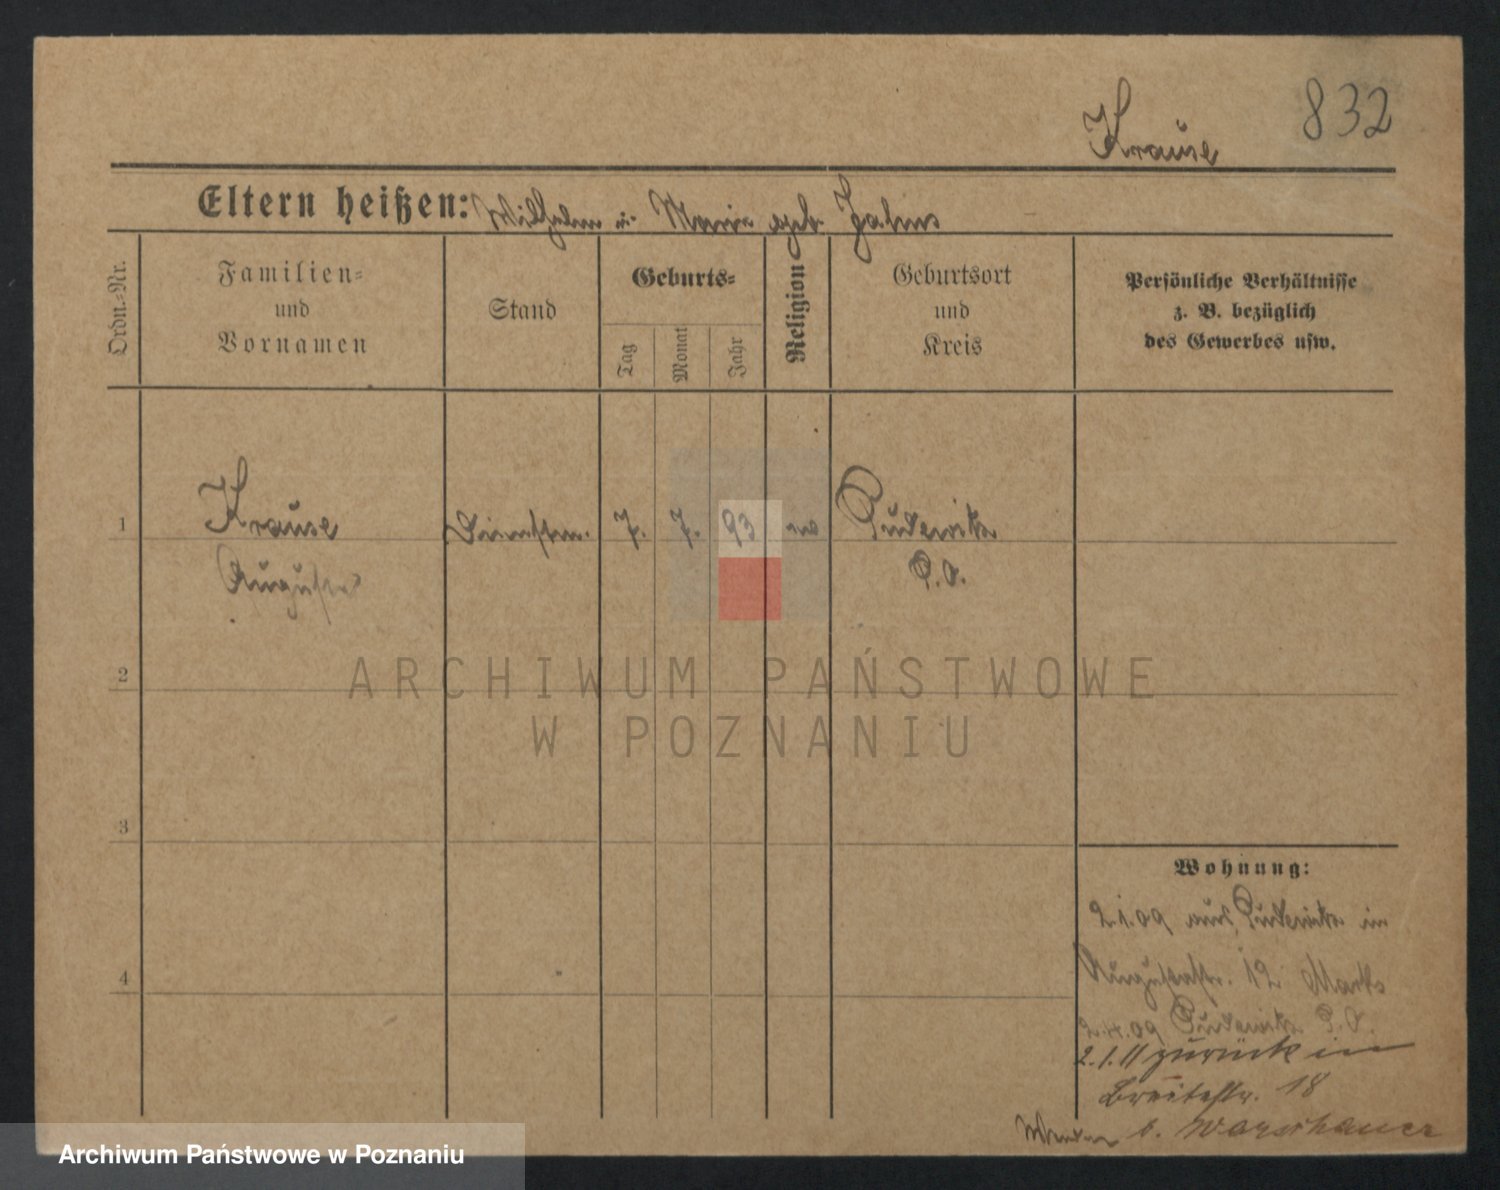 832
Krause
Eltern heißen: Wilhelm u. Marie geb. Jahns
Ordn.-Nr.
Familien-
und
Vornamen
Stand
Geburts-
Tag
Monat
Jahr
Religion
Geburtsort
und
Kreis
Persönliche Verhältnisse
z. B. bezüglich
des Gewerbes usw.
1
Krause
Dienstm. 7. 7. 93 ev Pudewitz
Auguste
P.O.
2
ARCHIWUM PAŃSTWOWE
W POZNANIU
3
4
Wohnung:
2.1.09 aus Pudewitz in
Augustastr. 12 Marks
2.4.09 Pudewitz P.O.
2.1.11 zurück in
Breitestr. 18
b. Warschauer
Archiwum Państwowe w Poznaniu